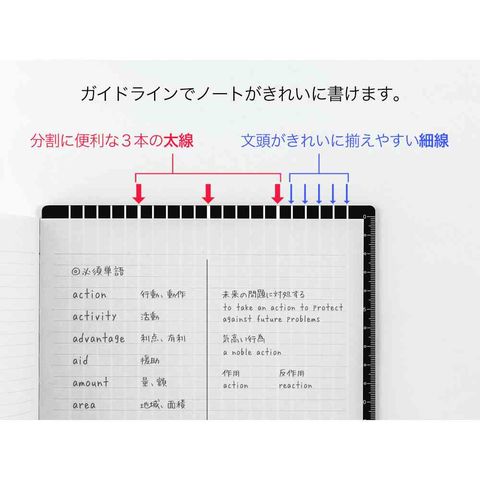 ガイドラインでノートがきれいに書けます。
分割に便利な3本の太線
文頭がきれいに揃えやすい細線
◎必須単語
action 行動、動作
activity 活動
advantage 利点、有利
aid 援助
amount 量、額
area 地域、面積
未来の問題に対処する
to take an action to protect
against future problems
気高い行為
a noble action
作用 反作用
action reaction